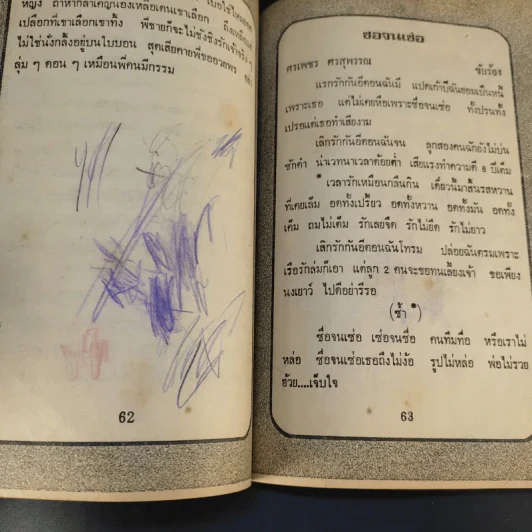 หญิง ถ้าหากลำเค็ญน้องเหลือเดนเขาเลือก
เปลือกที่เขาเลือกเขาทิ้ง พี่ชายก็จะไม่ชิงชังรักเจ้าจริง ๆ
ไม่ใช่นั่งกลิ้งอยู่บนใบบอน สุดเสียดายพี่ขออวยพร
ลุ่ม ๆ ดอน ๆ เหมือนพี่คนมีกรรม
62
ซื่อจนเซ่อ
ศรเพชร ศรสุพรรณ ขับร้อง
แรกรักกันอีตอนฉันมี แปดเก้าปีฉันยอมเป็นหนี้
เพราะเธอ แต่ไม่เคยหือเพราะซื่อจนเซ่อ ทั้งปรนทั้ง
เปรอแต่เธอทำเสียงาม
เลิกรักกันอีตอนฉันจน ลูกสองคนฉันยังไม่บ่น
ซักคำ น่าเวทนาเวลาต้อยต่ำ เสียแรงทำความดี 8 ปีเต็ม
* เวลารักเหมือนกลืนกิน เดี๋ยวนี้มาสิ้นรสหวาน
ที่เคยเล็ม อดทั้งเปรี้ยว อดทั้งหวาน อดทั้งมัน อดทั้ง
เค็ม ถมไม่เต็ม รักเลยจืด รักไม่ยืด รักไม่ยาว
เลิกรักกันอีตอนฉันโทรม ปล่อยฉันตรมเพราะ
เรือรักล่มก็เอา แต่ลูก 2 คนจะขอทนเลี้ยงเจ้า ขอเพียง
นงเยาว์ ไปดีอย่ารีรอ
(ซ้ำ *)
ซื่อจนเซ่อ เซ่อจนซื่อ คนทึมทื่อ หรือเราไม่
หล่อ ซื่อจนเซ่อเธอถึงไม่ง้อ รูปไม่หล่อ พ่อไม่รวย
ฮ้วย....เจ็บใจ
63